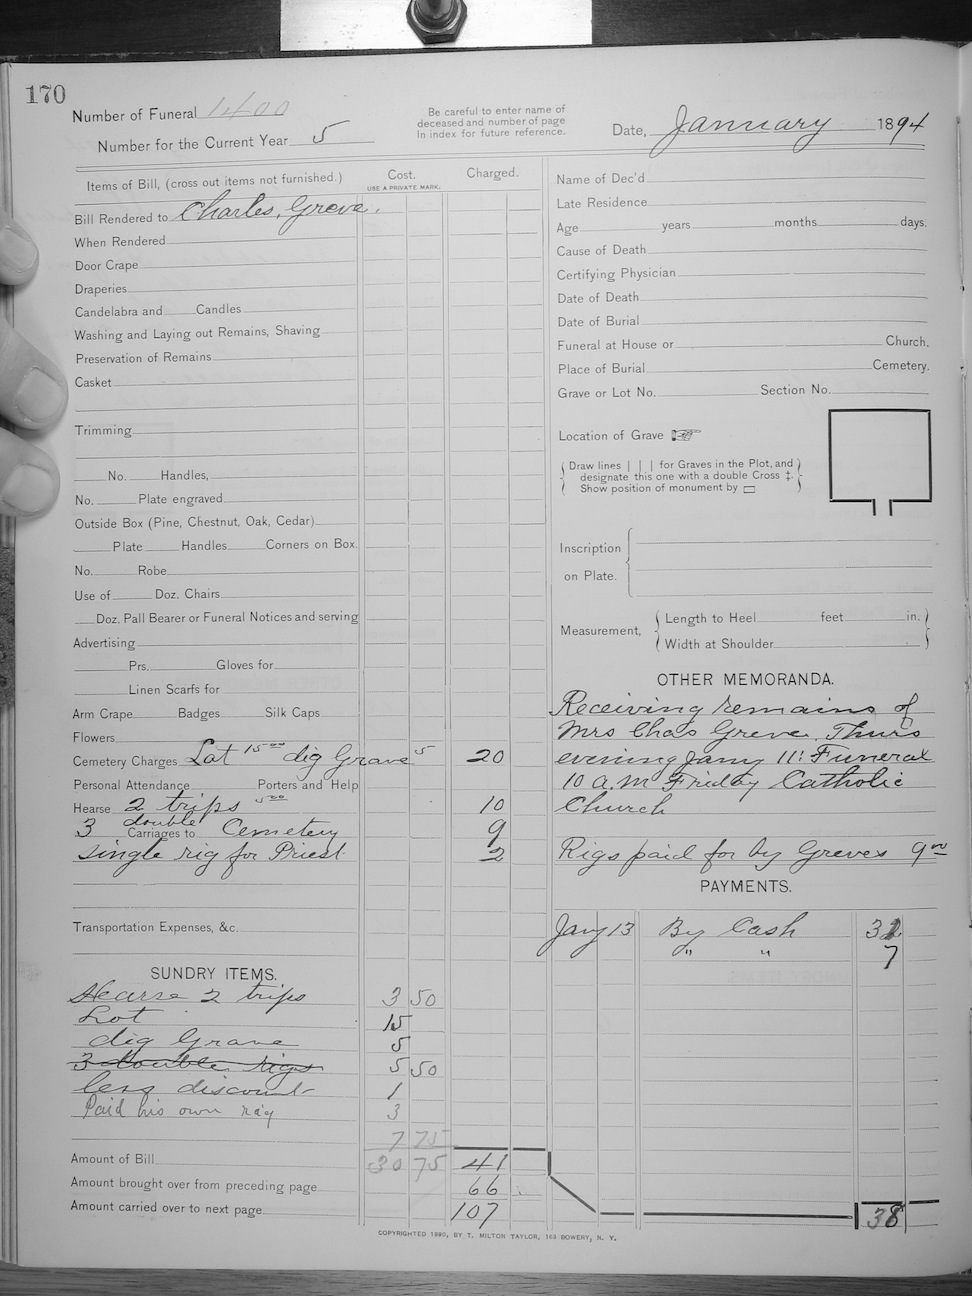 170
Number of Funeral 1400
Number for the Current Year 5
Be careful to enter name of
deceased and number of page
in index for future reference.
Date, January 1894
Items of Bill, (cross out items not furnished.)
Cost.
USE A PRIVATE MARK.
Charged.
Bill Rendered to Charles Greve.
When Rendered
Door Crape
Draperies
Candelabra and Candles
Washing and Laying out Remains, Shaving
Preservation of Remains
Casket
Trimming
No. Handles,
No. Plate engraved
Outside Box (Pine, Chestnut, Oak, Cedar)
Plate Handles Corners on Box.
No. Robe
Use of Doz. Chairs
Doz. Pall Bearer or Funeral Notices and serving
Advertising
Prs. Gloves for
Linen Scarfs for
Arm Crape Badges Silk Caps
Flowers
Cemetery Charges Lot 15 00 dig Grave 5 20
Personal Attendance Porters and Help
Hearse 2 trips 5 00 10
3 double Carriages to Cemetery 9
single rig for Priest 2
Transportation Expenses, &c.
SUNDRY ITEMS.
Hearse 2 trips 3 50
Lot 15
dig Grave 5
3 double rigs 5 50
less discount 1
Paid his own rig 3
7 75
Amount of Bill 30 75 41
Amount brought over from preceding page 66
Amount carried over to next page 107
Name of Dec'd
Late Residence
Age years months days.
Cause of Death
Certifying Physician
Date of Death
Date of Burial
Funeral at House or Church.
Place of Burial Cemetery.
Grave or Lot No. Section No.
Location of Grave
Draw lines | | | for Graves in the Plot, and
designate this one with a double Cross ‡.
Show position of monument by ▭
Inscription
on Plate.
Measurement,
Length to Heel feet in.
Width at Shoulder
OTHER MEMORANDA.
Receiving remains of
Mrs Chas Greve. Thurs
evening Jany 11! Funeral
10 a.m Friday Catholic
Church
Rigs paid for by Greves 9 00
PAYMENTS.
Jany 13 By Cash
" " 7
38
COPYRIGHTED 1890, BY T. MILTON TAYLOR, 163 BOWERY, N. Y.